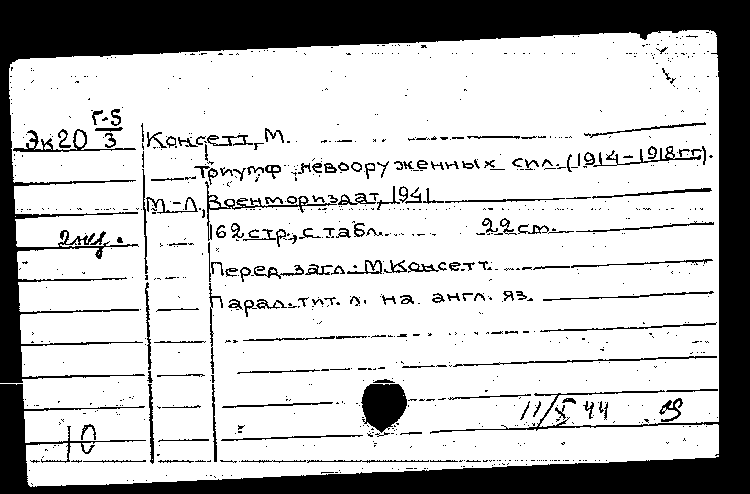 Г-5
Эк20 3 Консетт, М.
Триумф невооруженных сил. (1914-1918гг).
М.-Л., Военториздат, 1941
162 стр., с табл. 22 см.
2 экз.
Перед загл.: М. Консетт.
Парал. тит. л. на англ. яз.
11/X 44
10